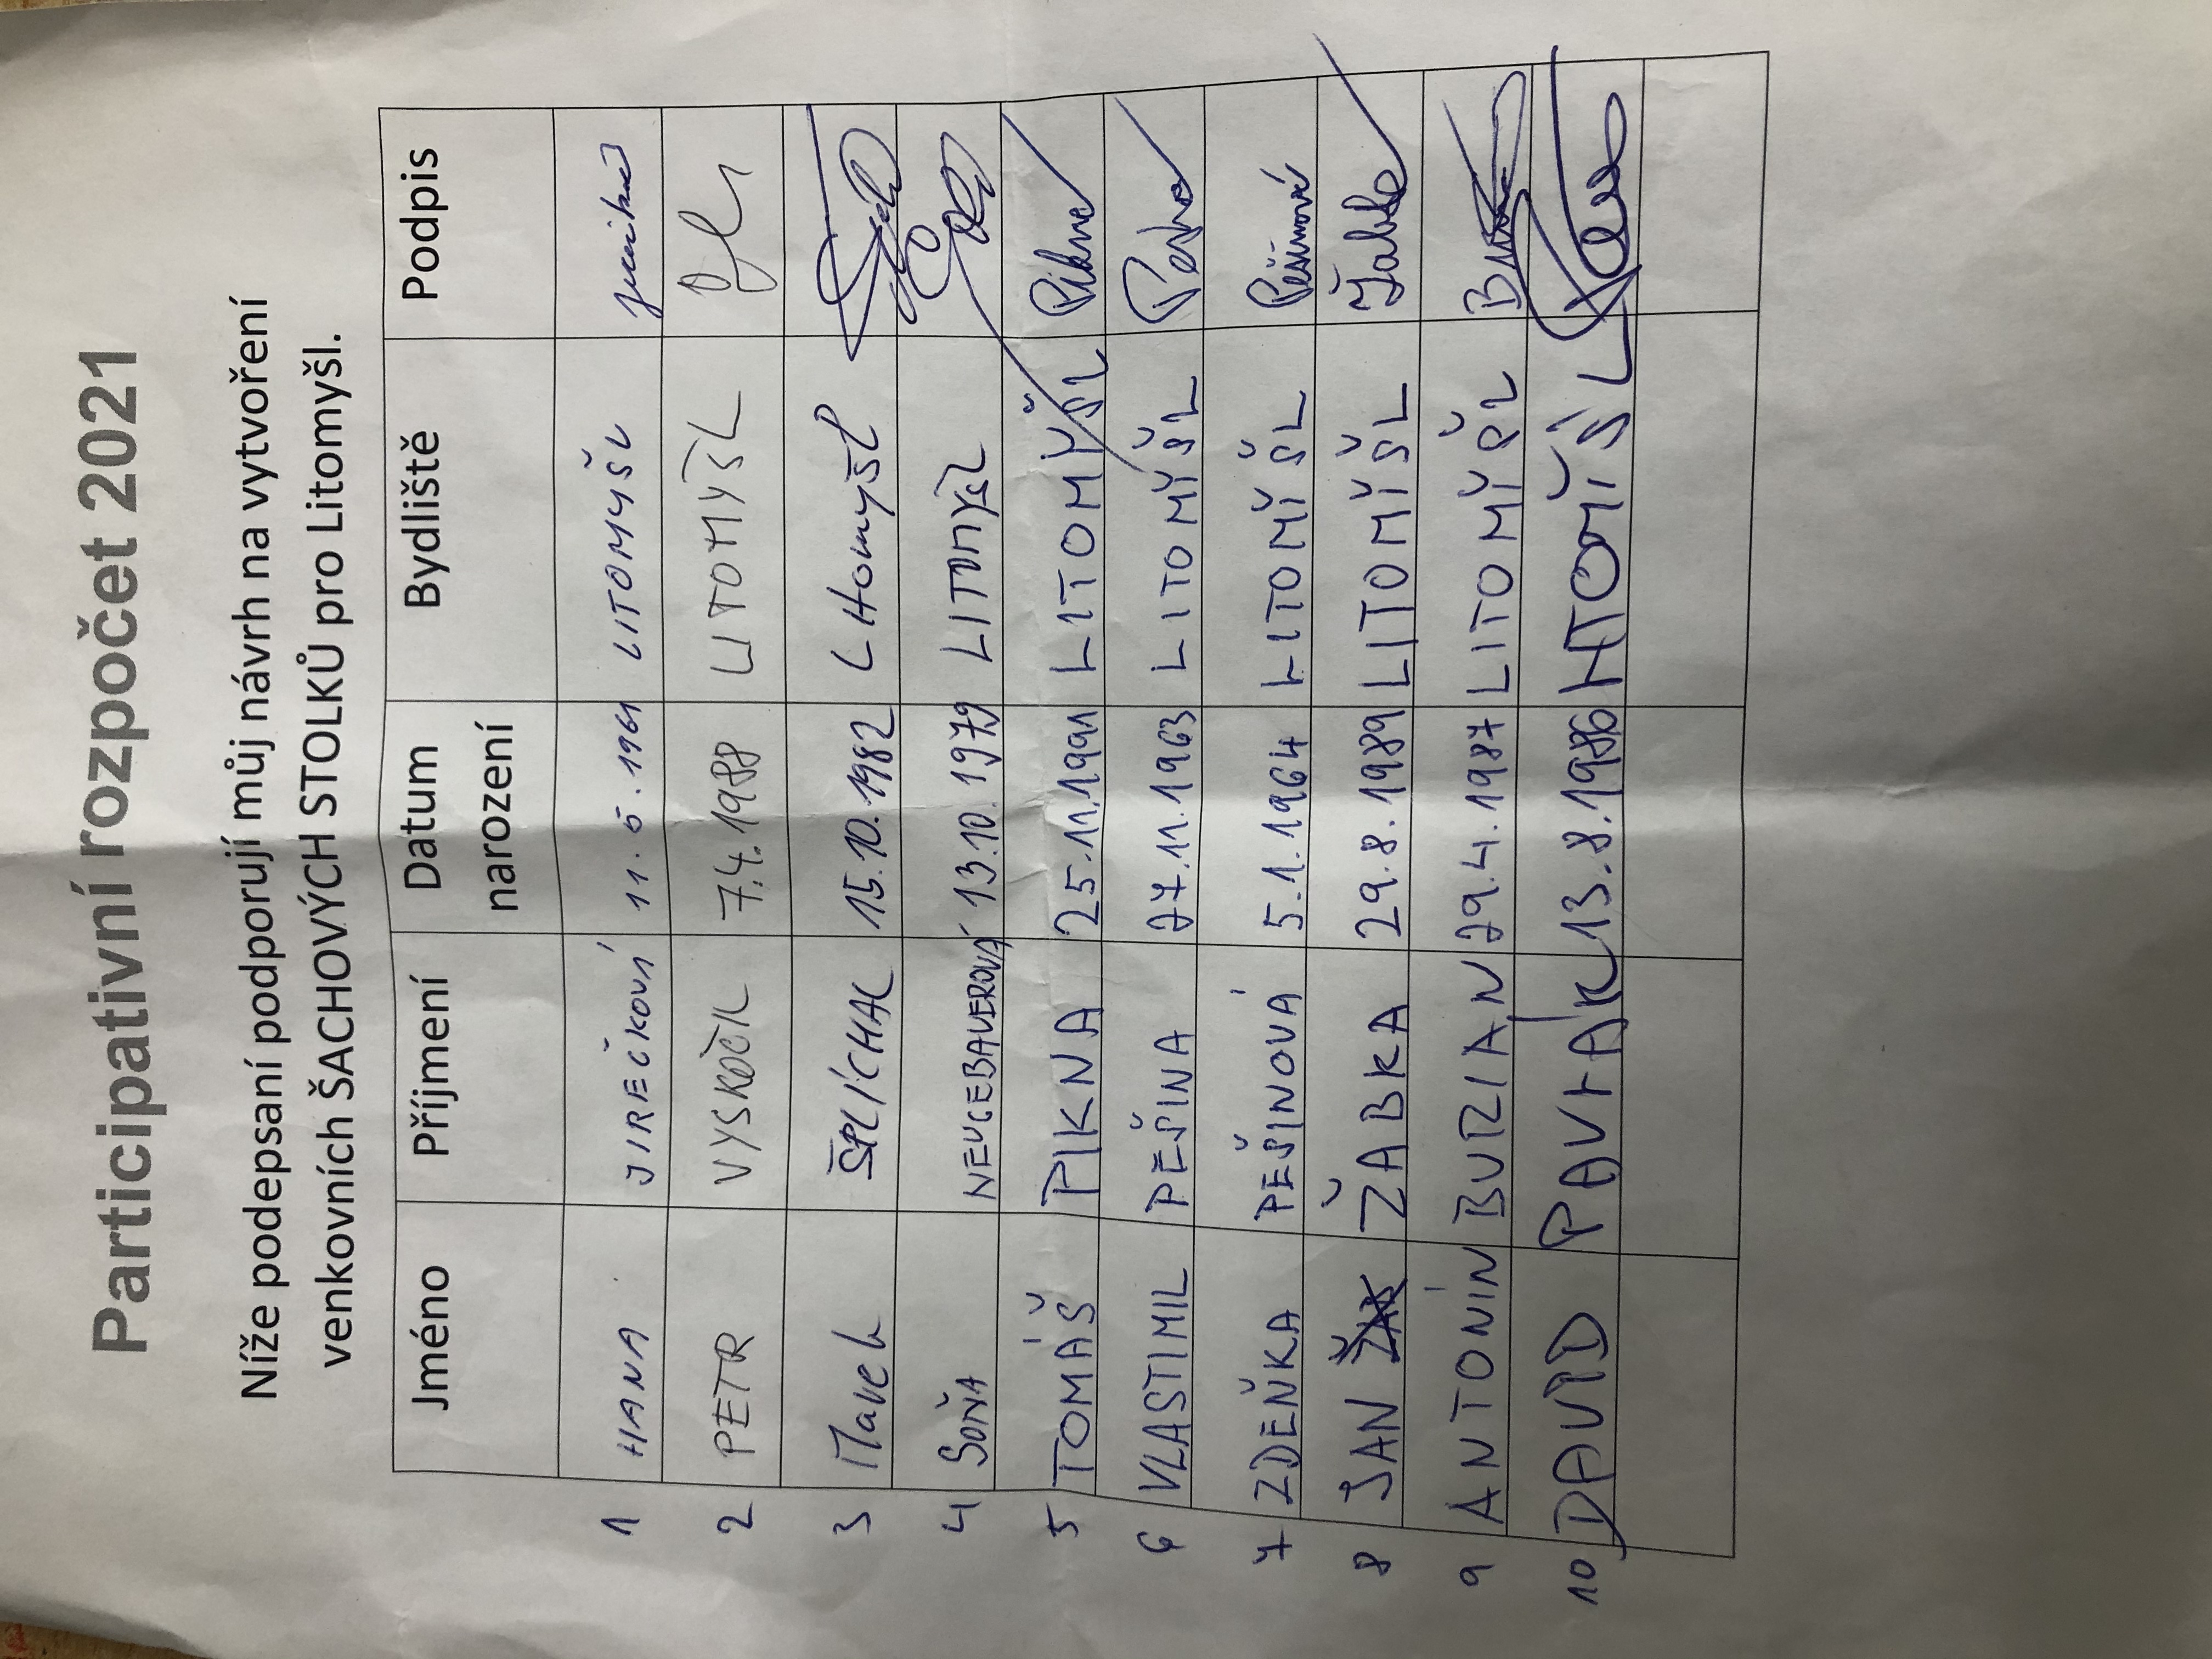 Participativní rozpočet 2021
Níže podepsaní podporují můj návrh na vytvoření
venkovních ŠACHOVÝCH STOLKŮ pro Litomyšl.
Jméno Příjmení Datum narození Bydliště Podpis
1 HANA JIREČKOVÁ 11.5.1961 LITOMYŠL
2 PETR VYSKOČIL 7.4.1988 LITOMYŠL
3 Pavel ŠPLÍCHAL 15.10.1982 Litomyšl
4 SOŇA NEUGEBAUEROVÁ 13.10.1979 LITOMYŠL
5 TOMÁŠ PIKNA 25.11.1991 LITOMYŠL Pikna
6 VLASTIMIL PEŠINA 27.11.1963 LITOMIŠL
7 ZDEŇKA PEŠINOVÁ 5.1.1964 LITOMIŠL Pešinová
8 JAN ŽABKA 29.8.1989 LITOMIŠL Žabka
9 ANTONÍN BURIAN 29.4.1987 LITOMIŠL
10 DAVID PAVLÁK 13.8.1986 LITOMIŠL